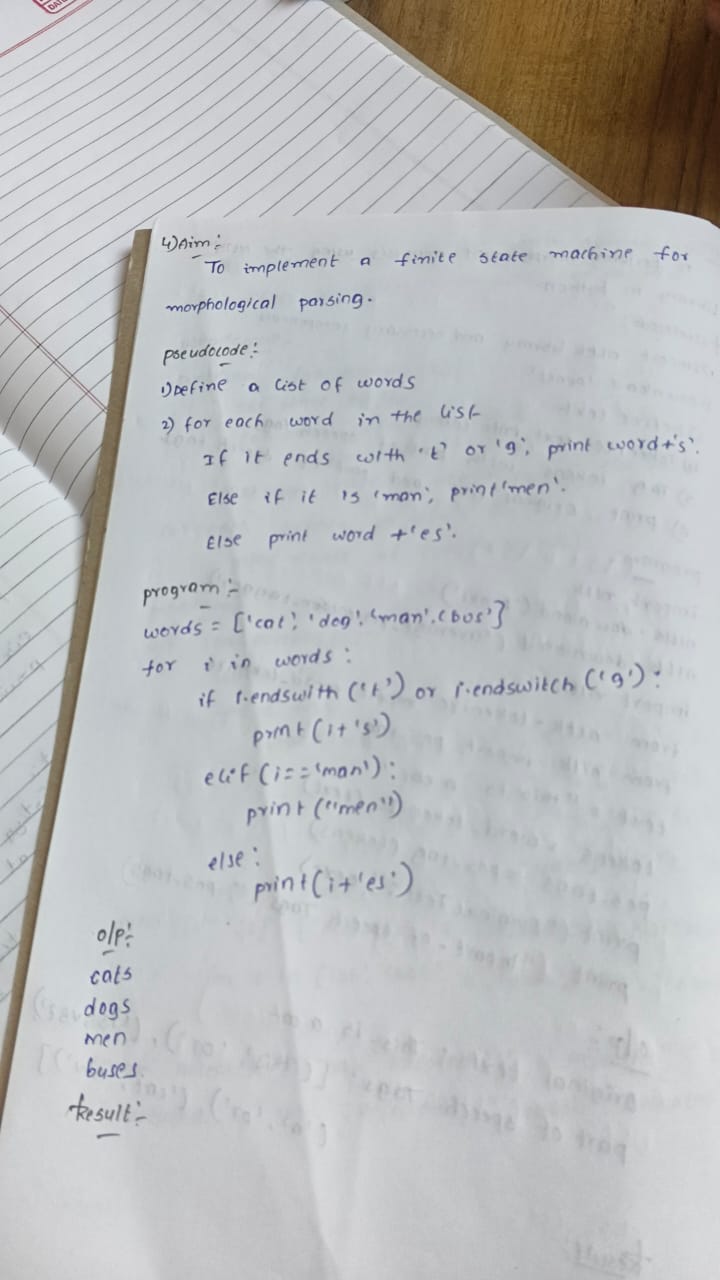 4) Aim:
To implement a finite state machine for
morphological parsing.
pseudocode:
1) Define a list of words
2) for each word in the list
If it ends with 't' or 'g', print word+'s'.
Else if it is 'man', print 'men'.
Else print word +'es'.
program:-
words = ['cat', 'dog', 'man', 'bus']
for i in words:
if i.endswith('t') or i.endswitch('g'):
print(i+'s')
elif (i=='man'):
print("men")
else:
print(i+'es')
o/p:
cats
dogs
men
buses
Result:-